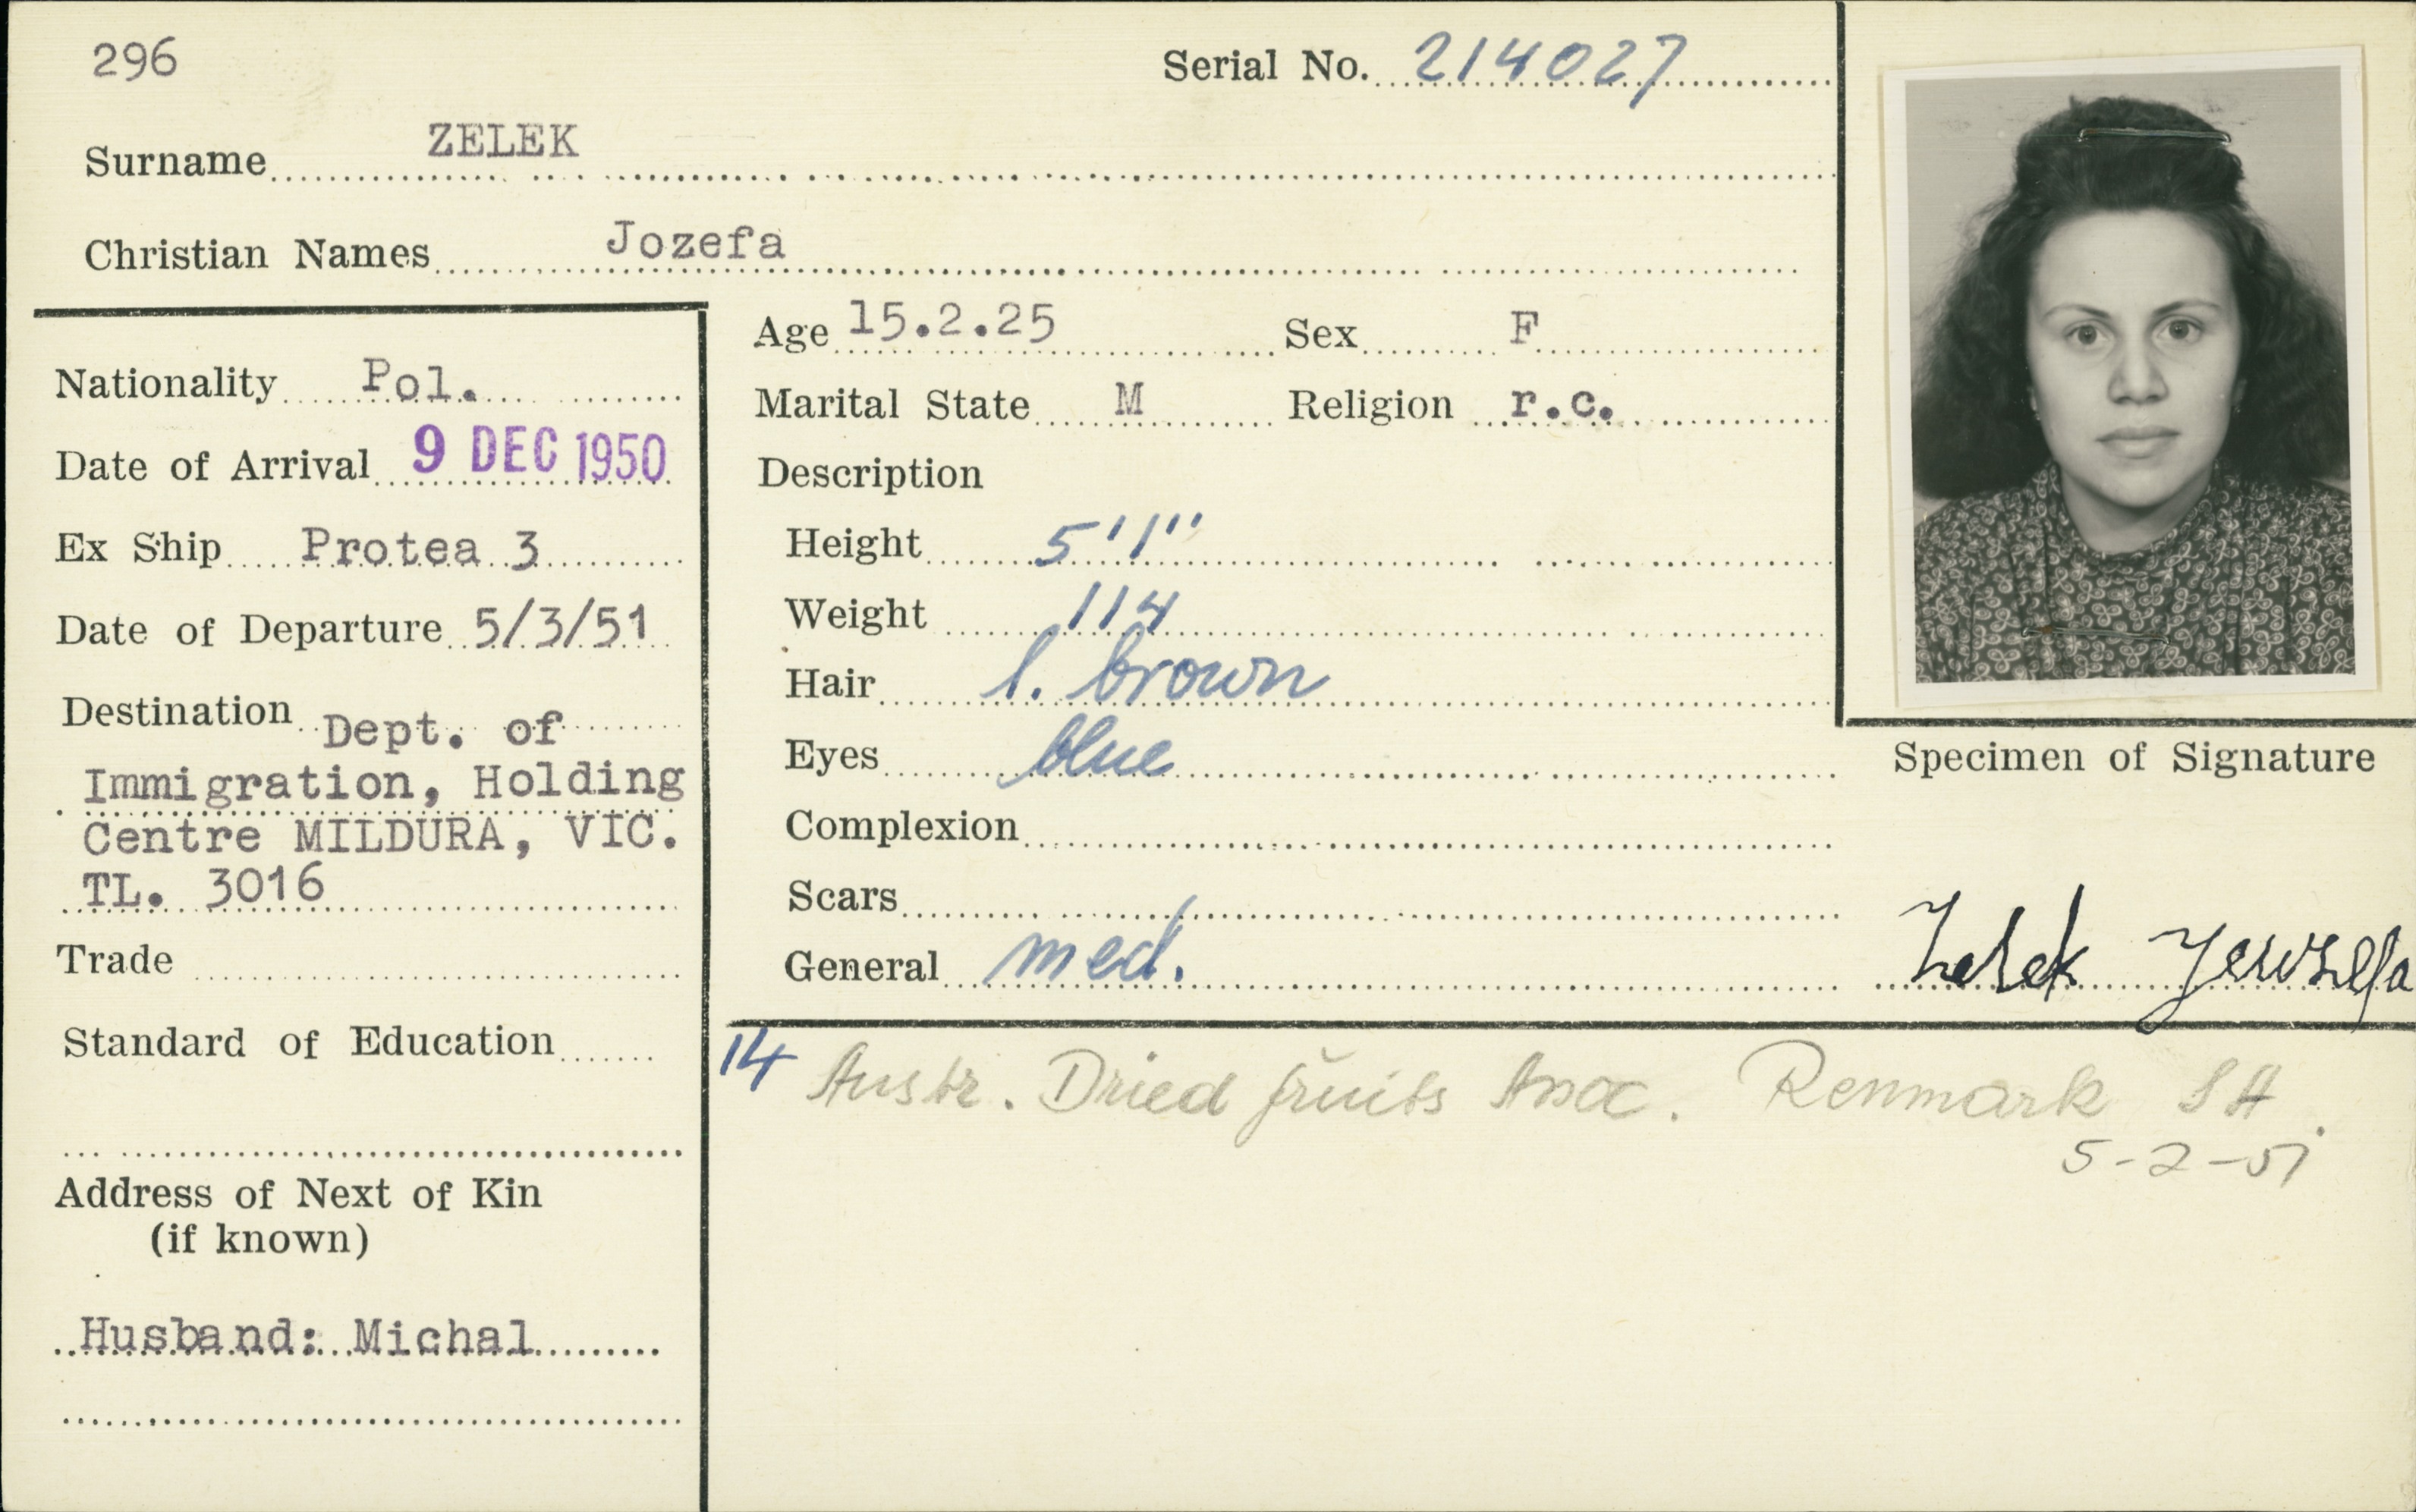 296
Serial No. 214027
Surname ZELEK
Christian Names Jozefa
Nationality Pol.
Date of Arrival 9 DEC 1950
Ex Ship Protea 3
Date of Departure 5/3/51
Destination Dept. of
Immigration, Holding
Centre MILDURA, VIC.
TL. 3016
Trade
Standard of Education
Address of Next of Kin
(if known)
Husband: Michal
Age 15.2.25 Sex F
Marital State M Religion r.c.
Description
Height 5'1"
Weight 114
Hair l. brown
Eyes blue
Complexion
Scars
General med.
Specimen of Signature
Zelek
14 Austr. Dried fruits Assoc. Renmark SA.
5-2-51